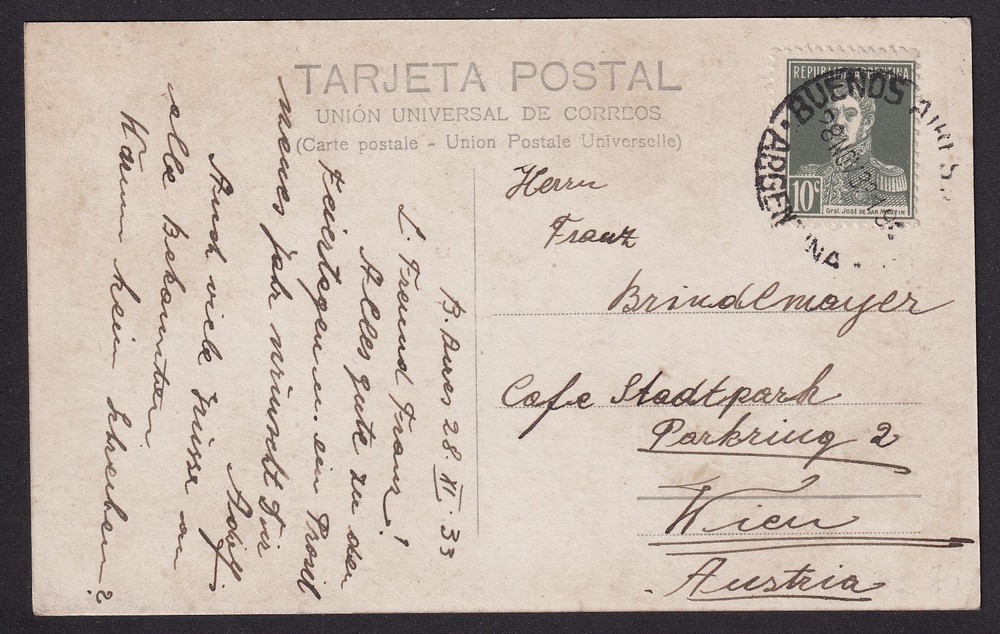 TARJETA POSTAL
UNIÓN UNIVERSAL DE CORREOS
(Carte postale - Union Postale Universelle)
REPUBLICA ARGENTINA
10c
Gral. José de San Martin
BUENOS AIRES
28 NOV
ARGENTINA
Herrn
Franz
Brindlmayer
Cafe Stadtpark
Parkring 2
Wien
Austria
B. Aires 28 XI 33
L. Freund Franz!
Alles gute zu den
Feiertagen u. ein Prosit
neues Jahr wünscht Dir
Adolf.
Auch viele Grüsse an
alle Bekannten
Kann kein